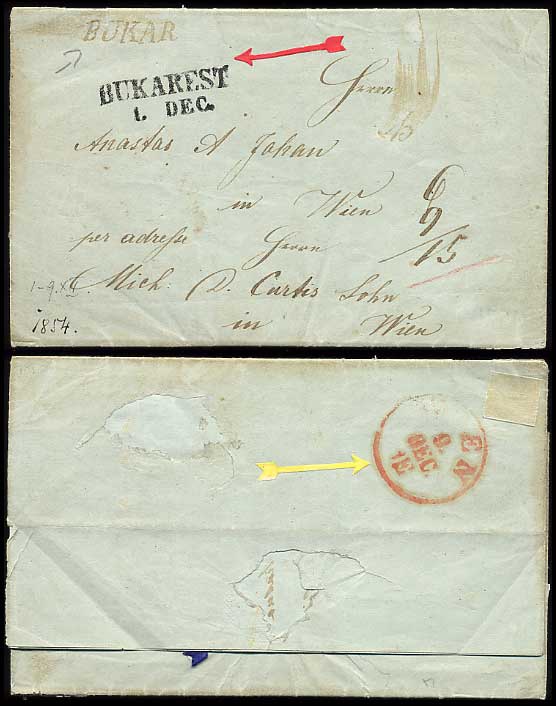 BUKAR
BUKAREST
1. DEC.
Herrn
15
Anastas A Johan
in Wien
6
9
/15
per adresse Herrn
Mich: D. Curtis Sohn
in Wien
1-9.XII.
1854.
EN
9.
DEC.
1E